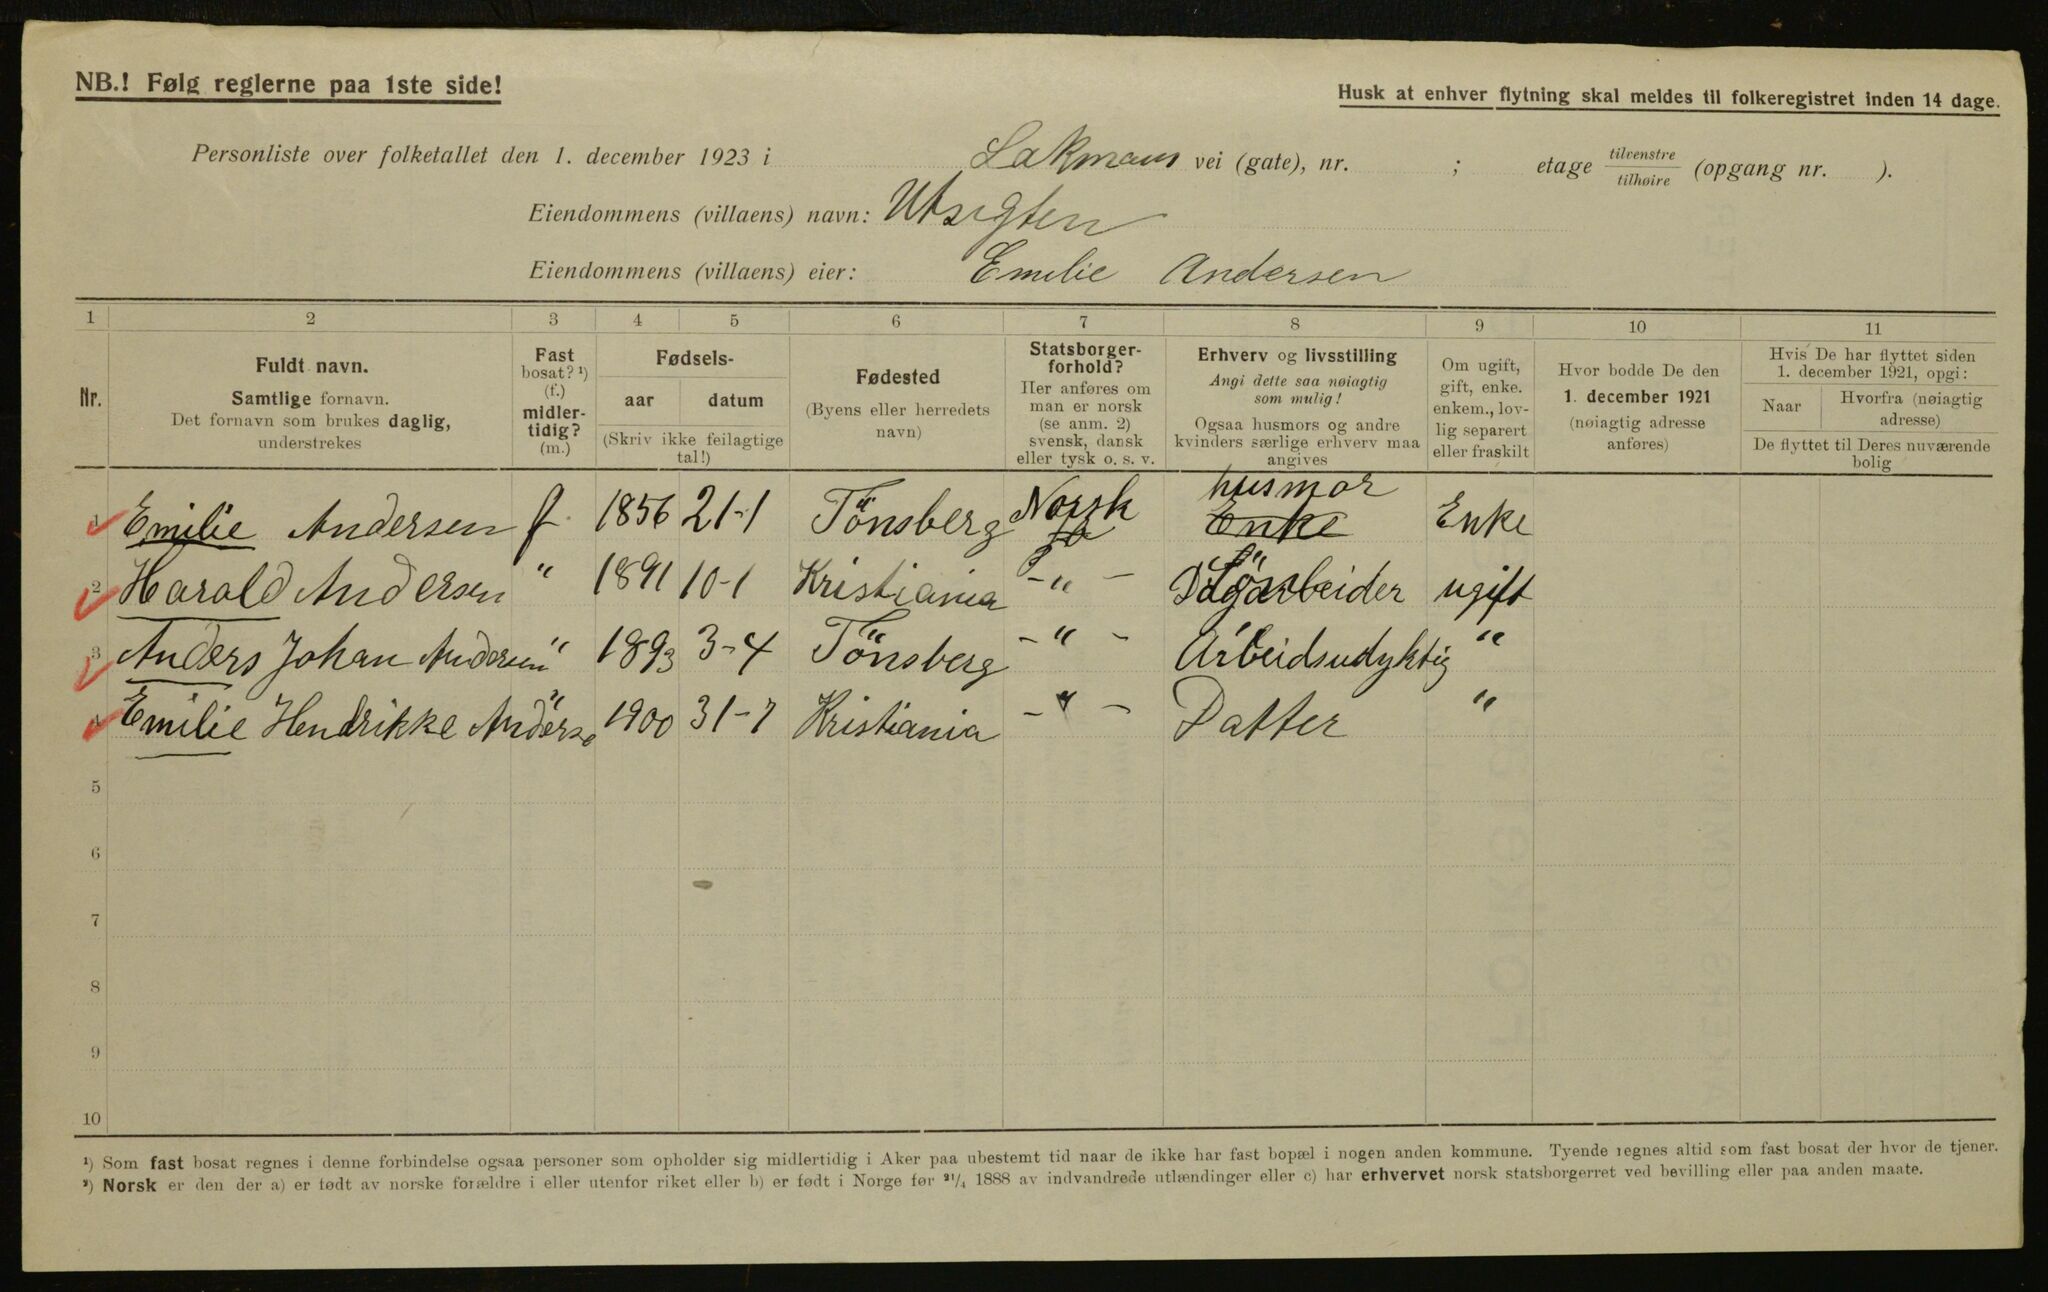 NB.! Følg reglerne paa 1ste side!
Husk at enhver flytning skal meldes til folkeregistret inden 14 dage.
Personliste over folketallet den 1. december 1923 i Lakmans vei (gate), nr. ; etage tilvenstre/tilhøire (opgang nr. ).
Eiendommens (villaens) navn: Utsigten
Eiendommens (villaens) eier: Emilie Andersen
1 2 3 4 5 6 7 8 9 10 11
Nr.
Fuldt navn.
Samtlige fornavn.
Det fornavn som brukes daglig,
understrekes
Fast
bosat? ¹)
(f.)
midler-
tidig?
(m.)
Fødsels-
aar datum
(Skriv ikke feilagtige
tal!)
Fødested
(Byens eller herredets
navn)
Statsborger-
forhold?
Her anføres om
man er norsk
(se anm. 2)
svensk, dansk
eller tysk o. s. v.
Erhverv og livsstilling
Angi dette saa nøiagtig
som mulig!
Ogsaa husmors og andre
kvinders særlige erhverv maa
angives
Om ugift,
gift, enke.
enkem., lov-
lig separert
eller fraskilt
Hvor bodde De den
1. december 1921
(nøiagtig adresse
anføres)
Hvis De har flyttet siden
1. december 1921, opgi:
Naar
Hvorfra (nøiagtig
adresse)
De flyttet til Deres nuværende
bolig
husmor
1 Emilie Andersen f. 1856 21-1 Tönsberg Norsk Enke Enke
2 Harald Andersen " 1891 10-1 Kristiania -"- ugift
3 Anders Johan Andersen " 1893 3-4 Tönsberg -"- Arbeidsudyktig "
4 Emilie Hendrikke Anderse " 1900 31-7 Kristiania -"- Datter "
5
6
7
8
9
10
¹) Som fast bosat regnes i denne forbindelse ogsaa personer som opholder sig midlertidig i Aker paa ubestemt tid naar de ikke har fast bopæl i nogen anden kommune. Tyende regnes altid som fast bosat der hvor de tjener.
²) Norsk er den der a) er født av norske forældre i eller utenfor riket eller b) er født i Norge før ²¹/₄ 1888 av indvandrede utlændinger eller c) har erhvervet norsk statsborgerret ved bevilling eller paa anden maate.